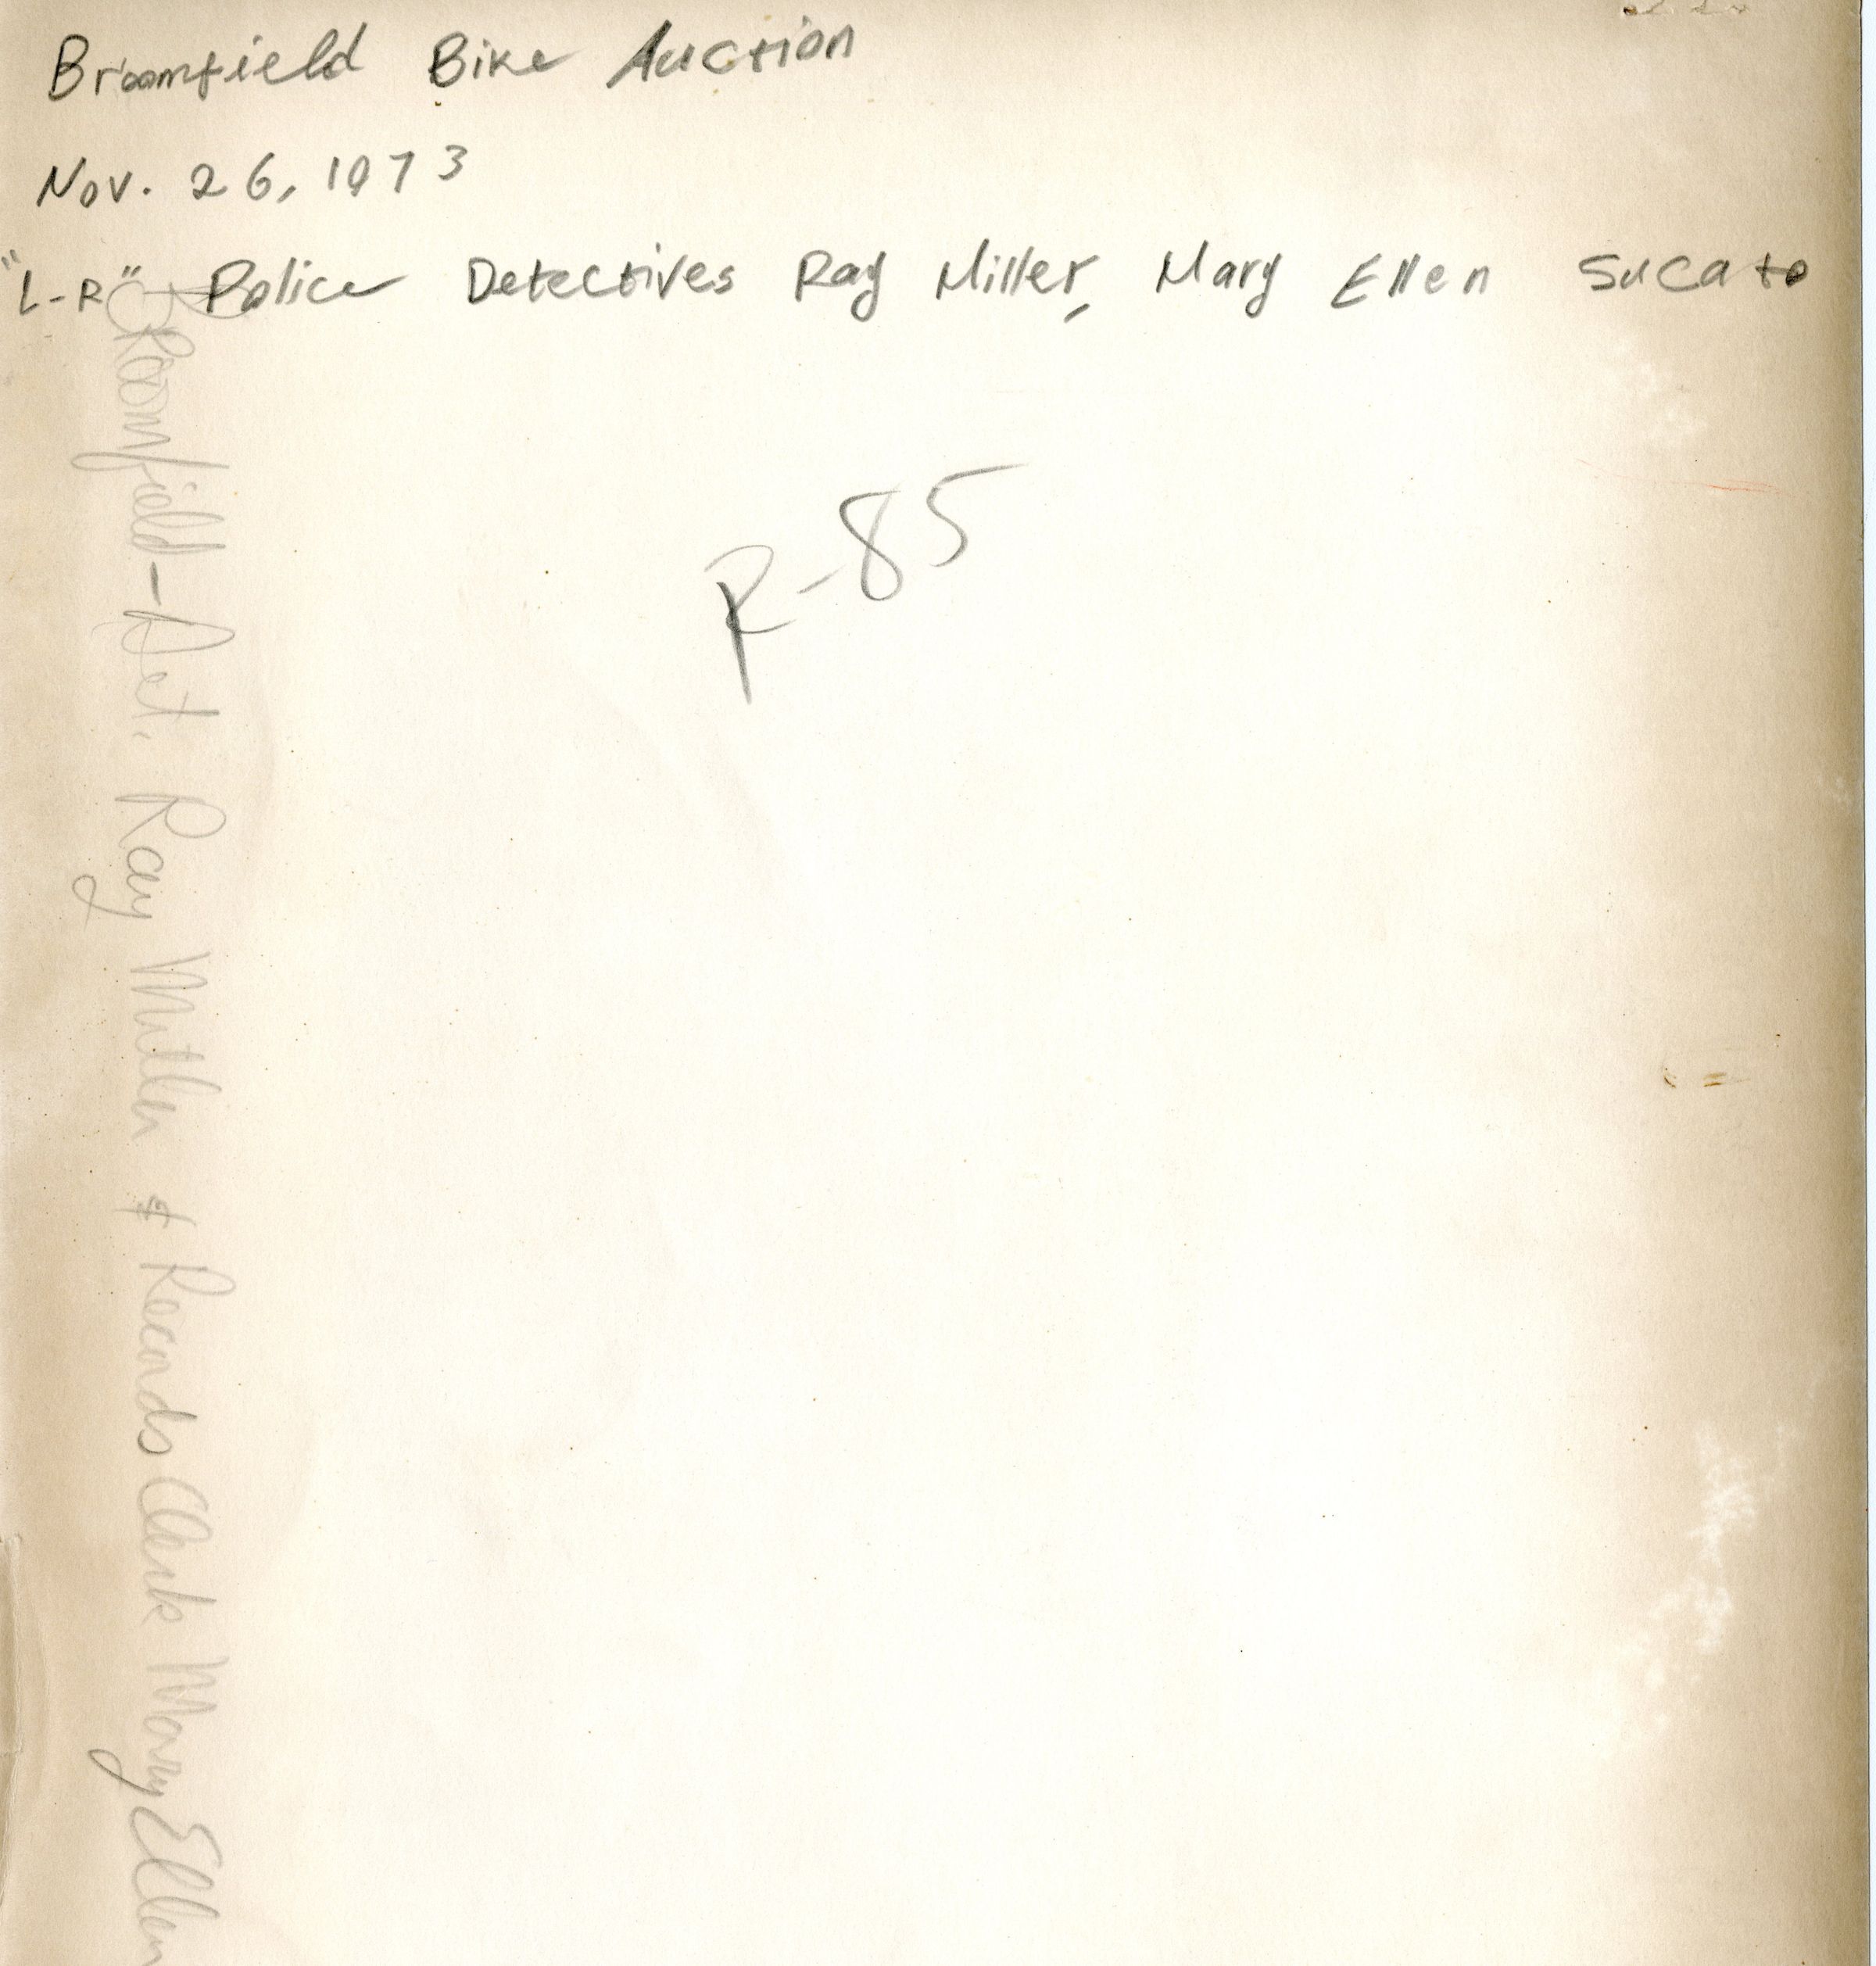 Broomfield Bike Auction
Nov. 26, 1973
"L-R" Police Detectives Ray Miller, Mary Ellen Sucato
R-85
Broomfield - Det. Ray Miller & Records Clerk Mary Ellen